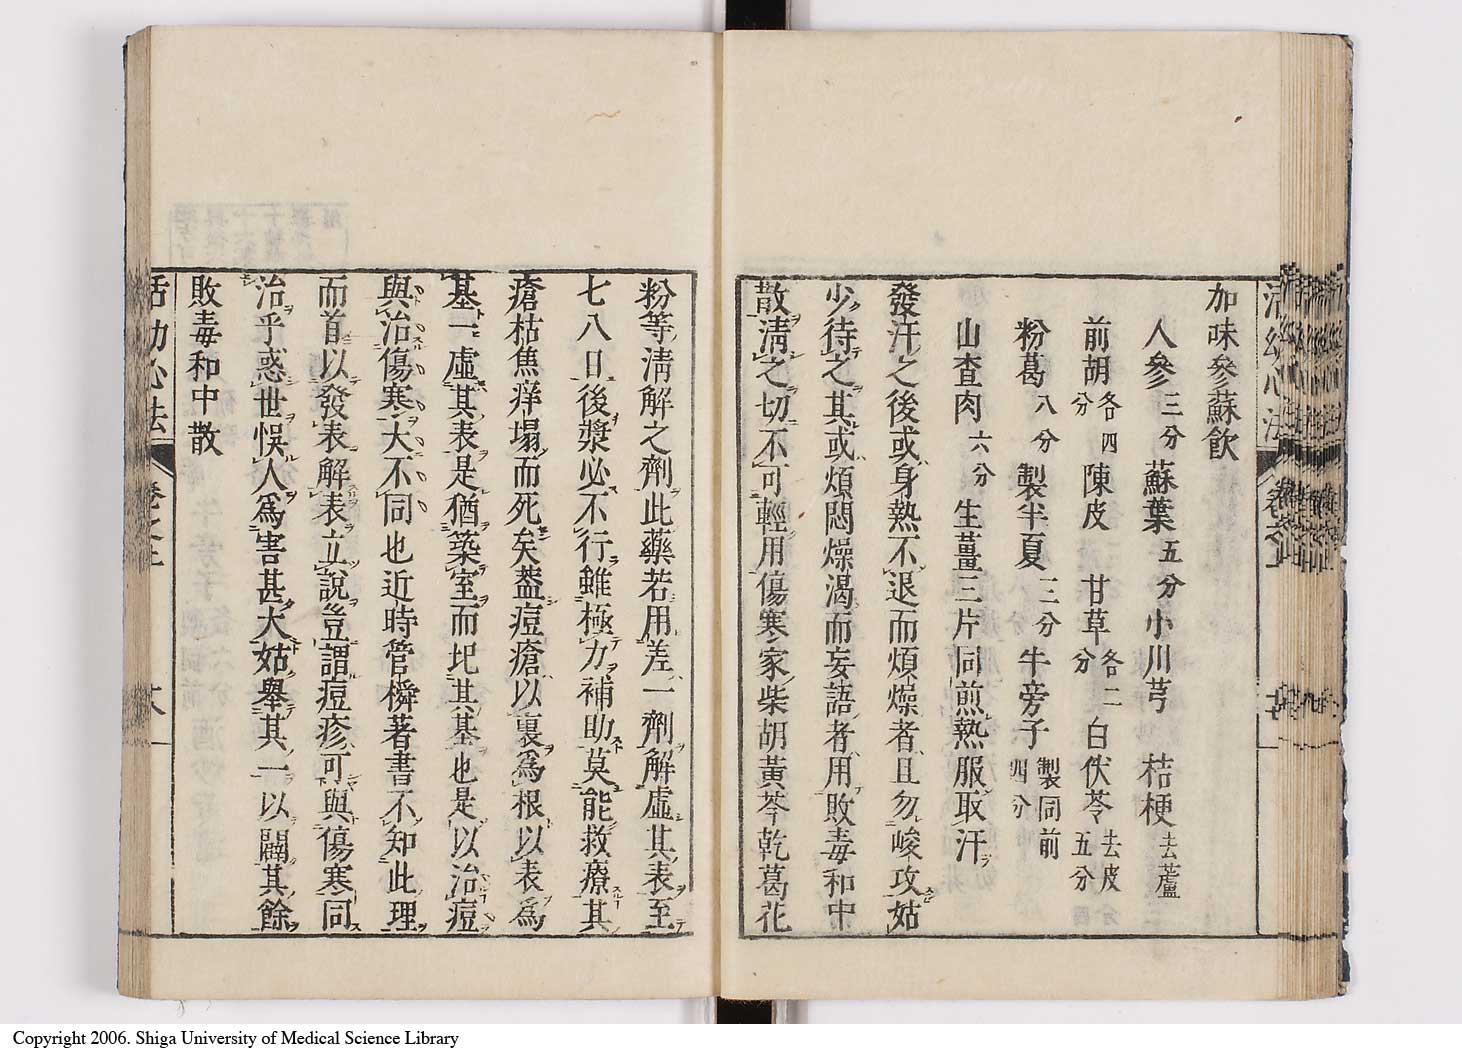 加味參蘇飲
人參三分蘇葉五分小川芎 桔梗去蘆
前胡各四分陳皮 甘草各二分白伏苓去皮五分
粉葛八分製半夏二分牛旁子製同前四分
山查肉六分生薑三片同煎熱服取汗
發汗之後或身熱不退而煩燥者且勿峻攻姑
少待之其或煩悶燥渴而妄語者用敗毒和中
散淸之切不可輕用傷寒家柴胡黃芩乾葛花
粉等淸解之劑此藥若用差一劑解虛其表至
七八日後漿必不行雖極力補助莫能救療其
瘡枯焦痒塌而死矣蓋痘瘡以裏爲根以表爲
基一虛其表是猶築室而圯其基也是以治痘
與治傷寒大不同也近時管橓著書不知此理
而首以發表解表立說豈謂痘疹可與傷寒同
治乎惑世悞人爲害甚大姑舉其一以闢其餘
敗毒和中散
活幼心法
Copyright 2006. Shiga University of Medical Science Library